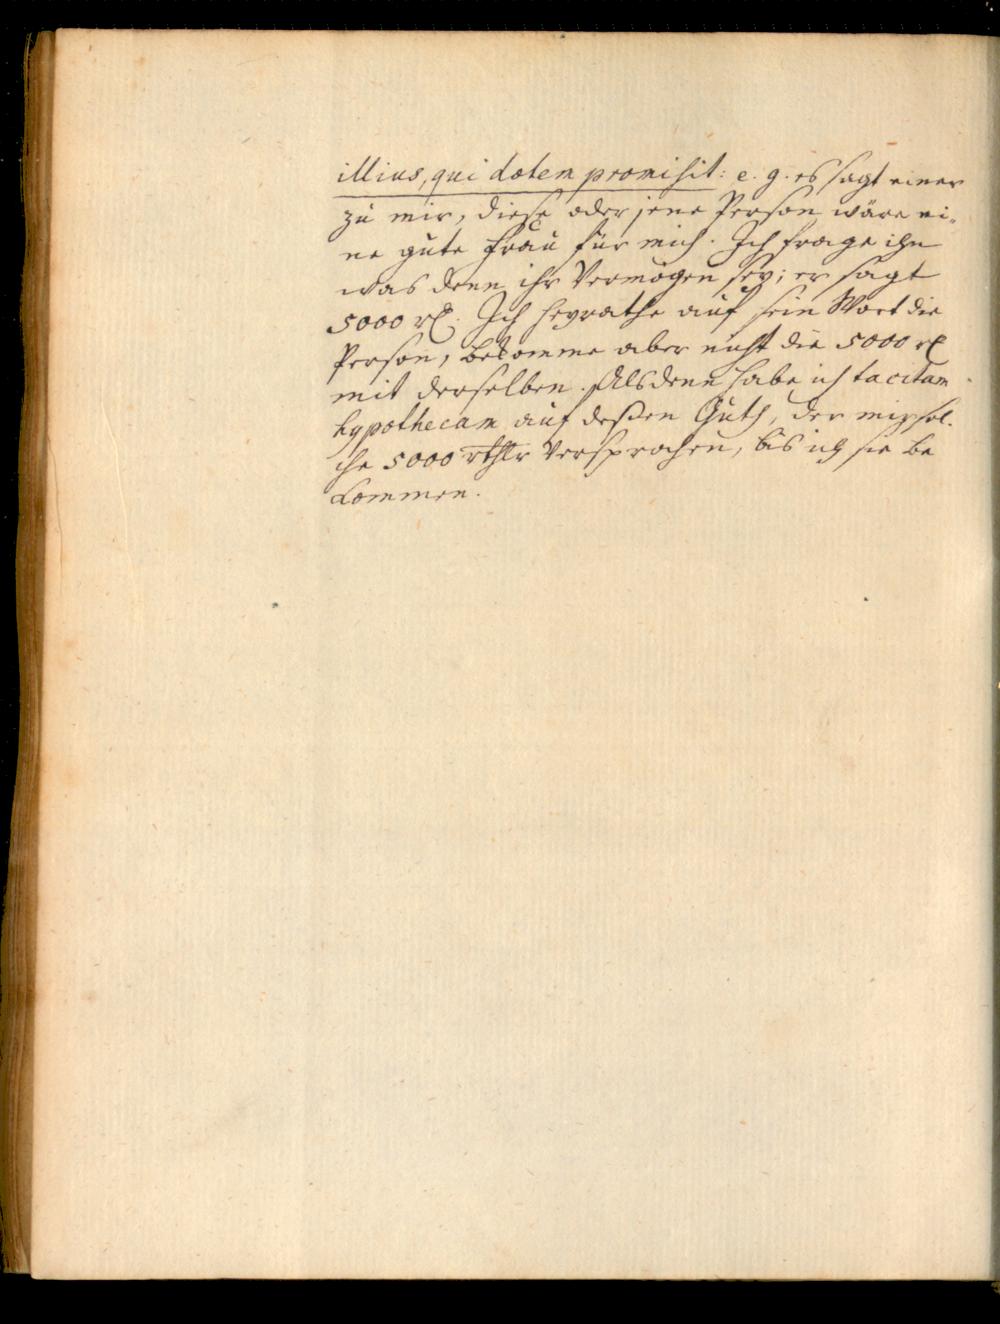 illius, qui dotem promisit: e. g. es sagt einer
zu mir, diese oder jene Person wäre ei-
ne gute Frau für mich. Ich frage ihn
was denn ihr Vermögen sey; er sagt
5000 rl. Ich heyrathe auf sein Wort die
Person, bekomme aber nicht die 5000 rl
mit derselben. Alsdenn habe ich tacitam
hypothecam auf deßen Guth, der mir sol-
che 5000 rthlr versprochen, bis ich sie be
kommen.